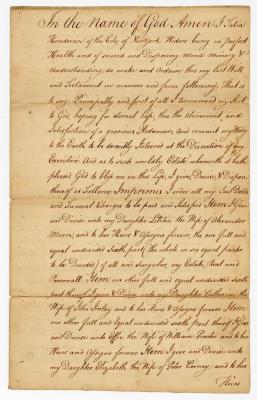 In the Name of God Amen I
Henderson of the City of New York Widow being in Perfect
Health and of sound and Disposing mind memory &
Understanding do make and Ordain this my last Will
and Testament in manner and form following, That is
to say, Principally and first of all I recommend my Soul
to God, hoping for eternal life, thro the Atonement, and
Satisfaction of a gracious Redeemer, And commit my Body
to the Earth to be decently Interred at the Discretion of my
Executors And as to such worldly Estate wherewith it hath
pleased God to bless me in this Life, I give Devise & Dispose
thereof as follows Imprimis I order all my Just Debts
and Funeral Charges to be paid and Satisfied Item I Give
and Devise unto my Daughter Letitia the Wife of Alexander
Moore, and to her Heirs & Assigns forever, the one full and
equal undivided Sixth part, (the whole in six equal parts
to be Divided) of all and Singular, my Estate, Real and
Personall Item one other full and equal undivided sixth
part thereof I give & Devise unto my Daughter Catherine the
Wife of John and to her Heirs & Assigns forever Item
one other full and Equal undivided Sixth part thereof I Give
and Devise unto Effie the Wife of William and to her
Heirs and Assigns forever Item I give and Devise unto
my Daughter Elizabeth the Wife of Peter and to her
Heirs